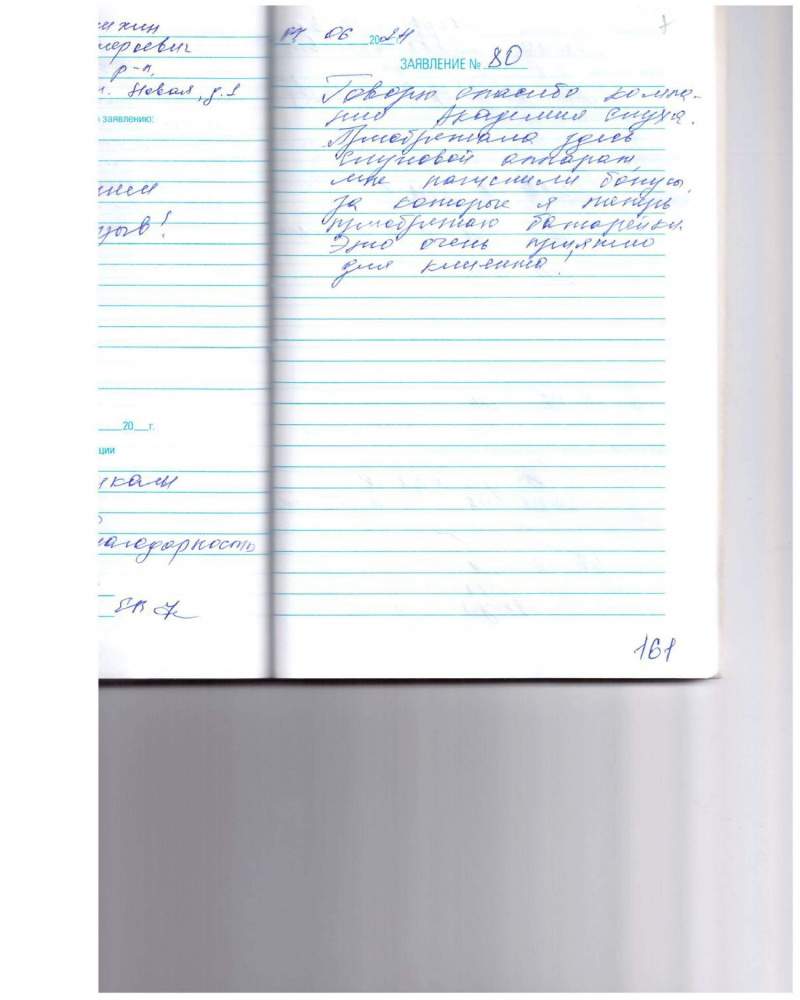 р-н,
Новая, д.1
заявлению:
20__г.
ции
благодарность
06 2024
ЗАЯВЛЕНИЕ № 80
Говорю спасибо компа-
нию Академия слуха.
Приобретала здесь
слуховой аппарат,
мне начислили бонусы,
за которые я теперь
приобретаю батарейки.
Это очень приятно
для клиента!
161